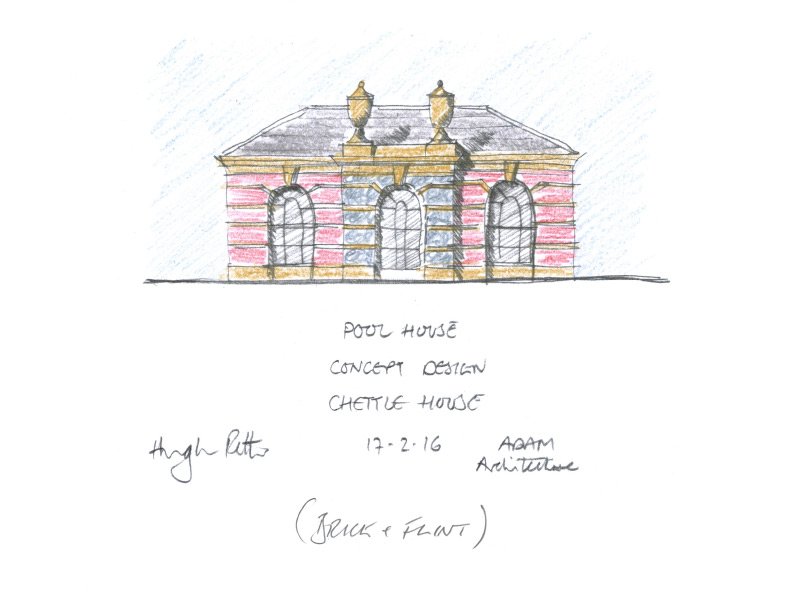 POOL HOUSE
CONCEPT DESIGN
CHETTLE HOUSE
Hugh Petter 17-2-16 ADAM
Architecture
(BRICK & FLINT)